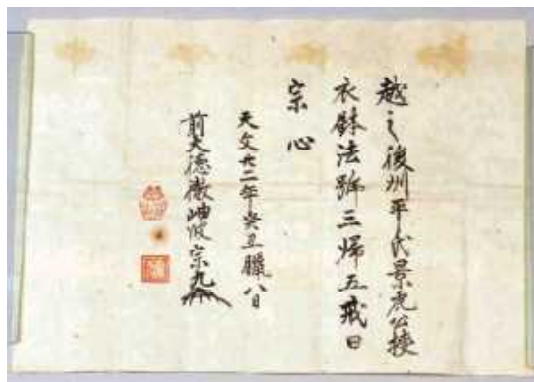 越之後州平氏景虎公授
衣鉢法號三帰五戒曰
宗心
天文廿二年癸丑臘八日
前大德徹岫叟宗九